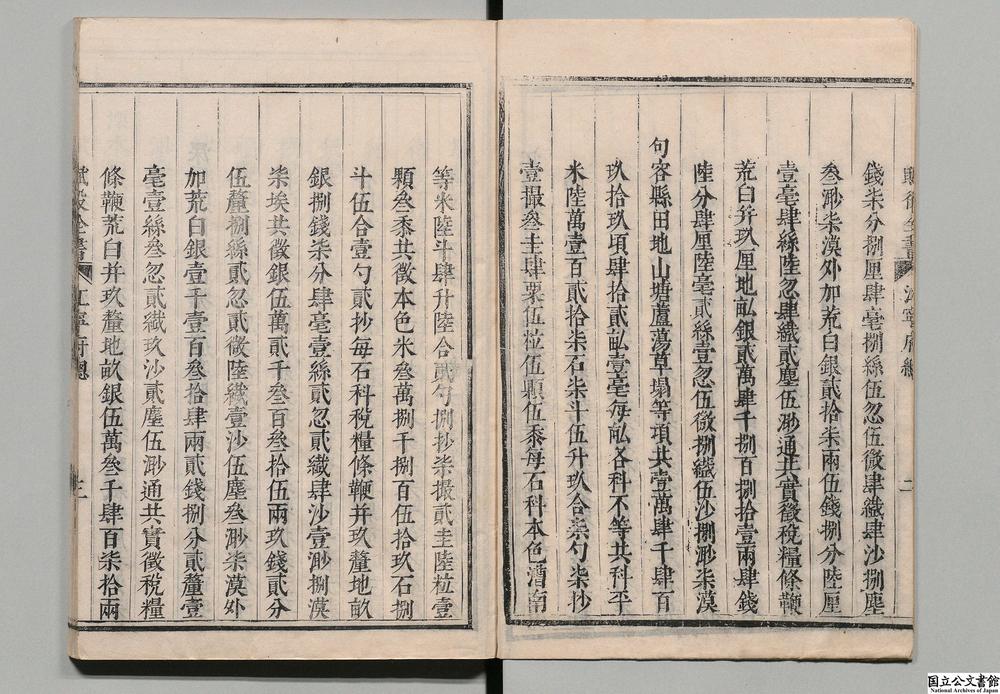 錢柒分捌厘肆毫捌絲伍忽伍微肆纖肆沙捌塵
叁渺柒漠外加荒白銀貳拾柒兩伍錢捌分陸厘
壹毫肆絲陸忽肆纖貳塵伍渺通共實徵稅糧條鞭
荒白并玖厘地畝銀貳萬肆千捌百捌拾壹兩肆錢
陸分肆厘陸毫貳絲壹忽伍微捌纖伍沙捌渺柒漠
句容縣田地山塘蘆蕩草塌等項共壹萬肆千肆百
玖拾玖頃肆拾貳畝壹毫每畝各科不等共科平
米陸萬壹百貳拾柒石柒斗伍升玖合柒勺柒抄
壹撮叁圭肆粟伍粒伍顆伍黍每石科本色漕南
等米陸斗肆升陸合貳勺捌抄柒撮貳圭陸粒壹
顆叁黍共徵本色米叁萬捌千捌百伍拾玖石捌
斗伍合壹勺貳抄每石科稅糧條鞭并玖釐地畝
銀捌錢柒分肆毫壹絲貳忽貳纖肆沙壹渺捌漠
柒埃共徵銀伍萬貳千叁百叁拾伍兩玖錢貳分
伍釐捌絲貳忽貳微陸纖壹沙伍塵叁渺柒漠外
加荒白銀壹千壹百叁拾肆兩貳錢捌分貳釐壹
毫壹絲叁忽貳纖玖沙貳塵伍渺通共實徵稅糧
條鞭荒白并玖釐地畝銀伍萬叁千肆百柒拾兩
賦役全書 江寧府總 三
国立公文書館
National Archives of Japan